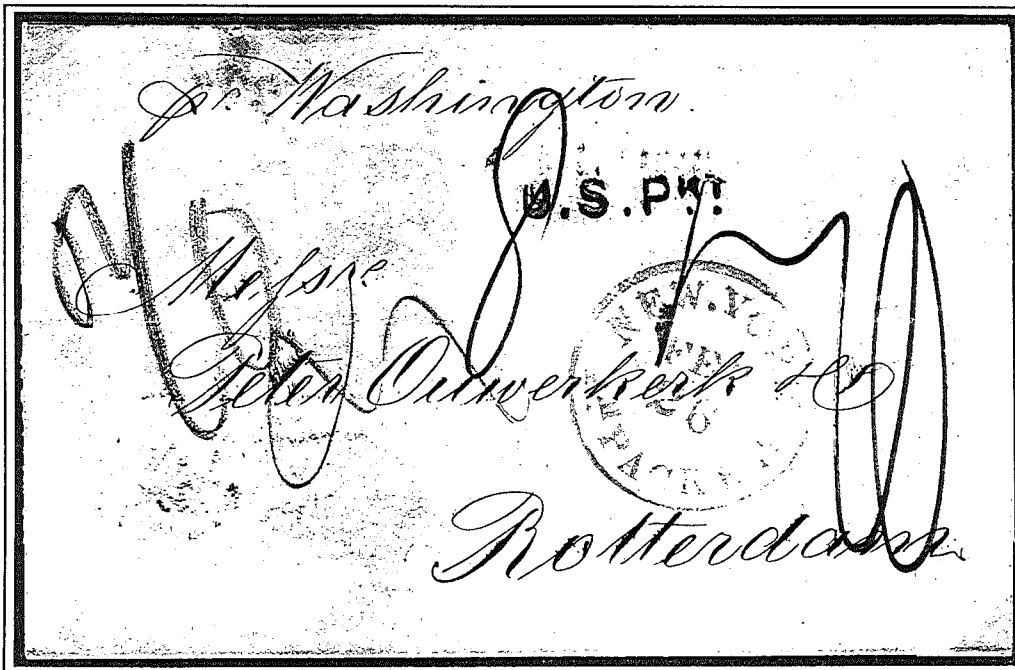 pr. Washington.
U.S.PKT.
Messrs
Peter Ouwerkerk & Co
NEW.YORK
FEB
26
AM.PACKET
Rotterdam